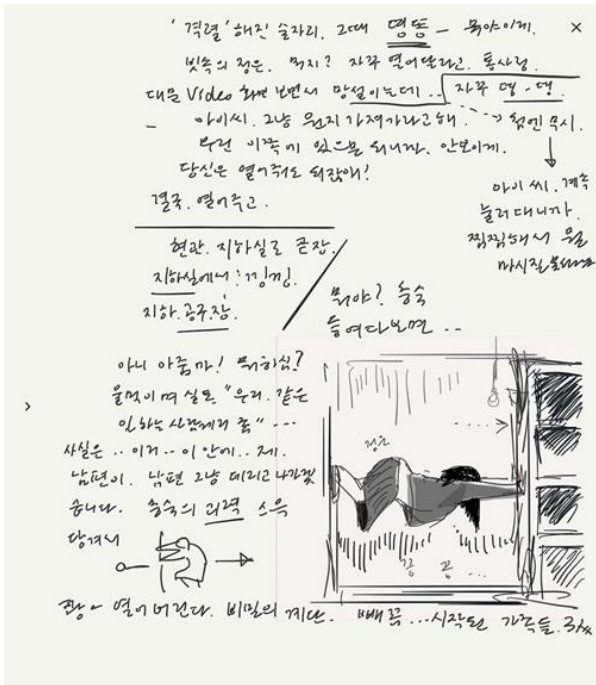 '격렬'해진 술자리. 그때 띵동 - 뭐야이게. ×
빗속의 정은. 뭐지? 자꾸 열어달라고. 통사정.
대문 Video 화면 보면서 망설이는데.. 자꾸 띵-띵.
- 아이씨. 그냥 뭔지 가져가라고해. → 첨엔 묵시.
우린 이쪽에 있으면 되니까. 안보이게.
당신은 열어줘도 되잖애!
결국. 열어주고.
아이 씨. 계속
눌러대니까.
찜찜해서 뭘
마시질
현관. 지하실로 곧장.
지하실에서: 낑낑.
지하.공구.장.
뭐야? 충숙
들여다보면 ..
아니 아줌마! 뭐하심?
울먹이며 실토 "우리. 같은
일하는 사람끼리 쫌" ...
사실은 .. 이러.. 이 안에.. 제.
남편이. 남편 그냥 데리고 나가겠
습니다. 충숙의 괴력 스윽
당겨서
정은
끙 끙 ...
쾅~ 열어버린다. 비밀의 계단. 빼꼼...시작된 가족들.